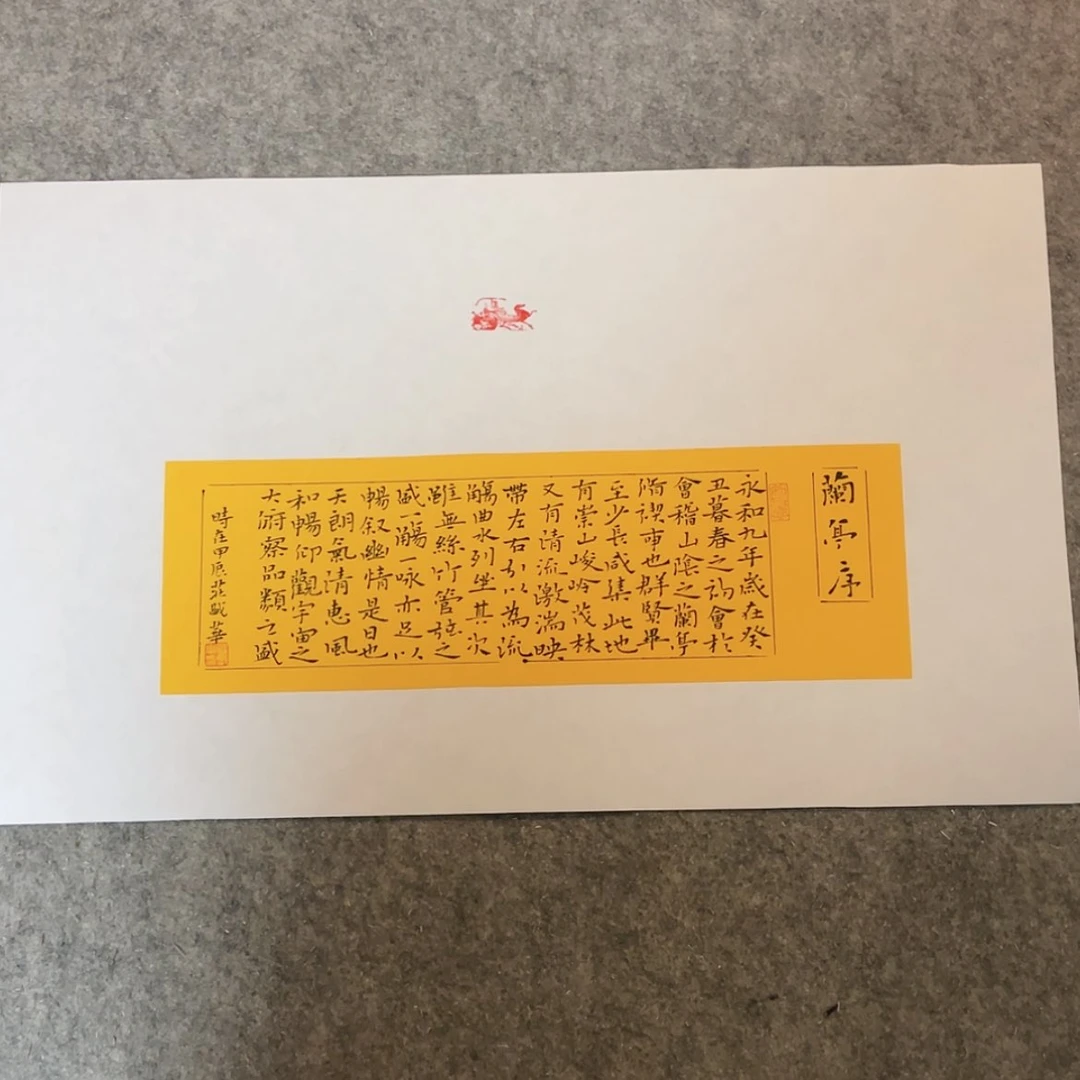 蘭亭序
永和九年歲在癸
丑暮春之初會於
會稽山陰之蘭亭
脩禊事也群賢畢
至少長咸集此地
有崇山峻岭茂林
又有清流激湍映
帶左右引以為流
觴曲水列坐其次
雖無絲竹管弦之
盛一觴一咏亦足以
暢叙幽情是日也
天朗氣清惠風
和暢仰觀宇宙之
大俯察品類之盛
時在甲辰莊毓華